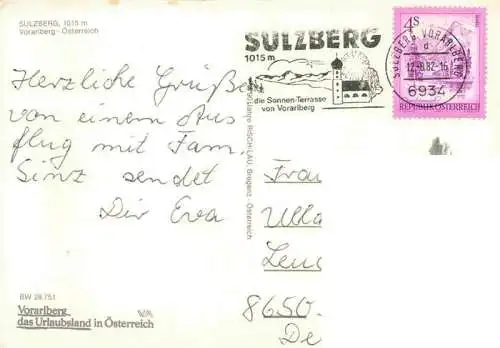 SULZBERG, 1015 m
Vorarlberg - Österreich
Herzliche Grüße
von einem Aus
flug mit Fam.
Sinz sendet
Dir Eva
BW 28 751
Vorarlberg
das Urlaubsland in Österreich
RISCH-LAU, Bregenz, Österreich
SULZBERG
1015 m
die Sonnen-Terrasse
von Vorarlberg
SULZBERG, VORARLBERG
d
6934
4S
REPUBLIK ÖSTERREICH
Frau
Ulla
8650
De